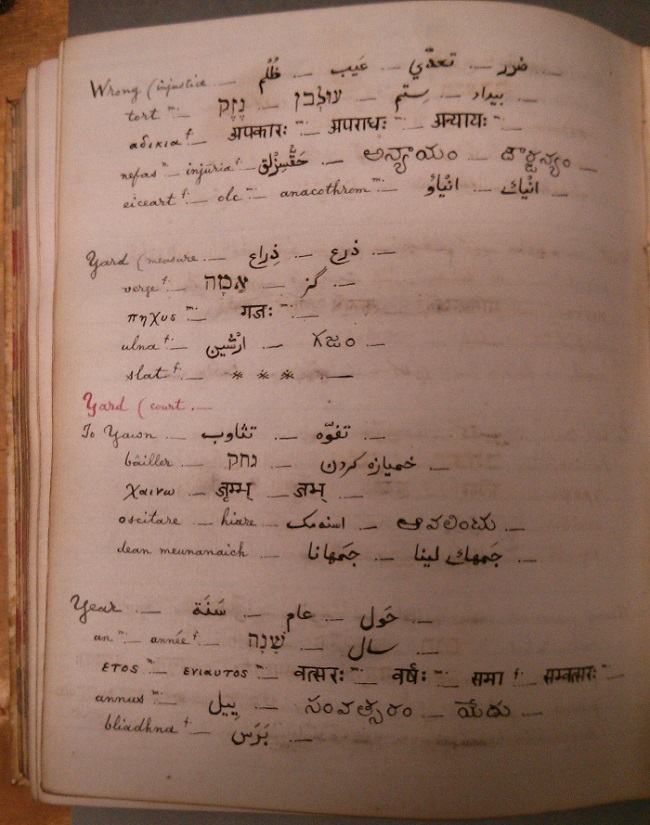 Wrong (injustice — ظُلُم — عَيب — تعدّي — ضرر —
tort m. — נֶזֶק — עולבן — سِتم — بيداد —
αδικια f. — अपकारः m. — अपराधः m. — अन्यायः m. —
nefas n. — injuria f. — — అన్యాయం —
eiceart f. — olc — anacothrom m. — انْياوُ — انْياك —
Yard (measure — ذِراع — ذرع —
verge f. — אַמָה — گز —
πηχυς m. — गजः m. —
ulna f. — ارْشين — గజం —
slat f. — * * * —
Yard (court —
To Yawn — تثاوب — تفوّه —
bâiller — נחק — خميازه كردن —
χαινω — जृम्भ् — जभ् —
oscitare — hiare — اسنه‌مك — ఆవలించు —
dean meunanaich — جَمهانا — جَمهك لينا —
Year — سَنَة — عام — حَول —
an m. — année f. — שָׁנָה — سال —
ετος n. — ενιαυτος m. — वत्सरः m. — वर्षः m. — समा f. — सम्वत्सरः m. —
annus m. — ييل — సంవత్సరం — యేడు —
bliadhna f. — بَرَس —